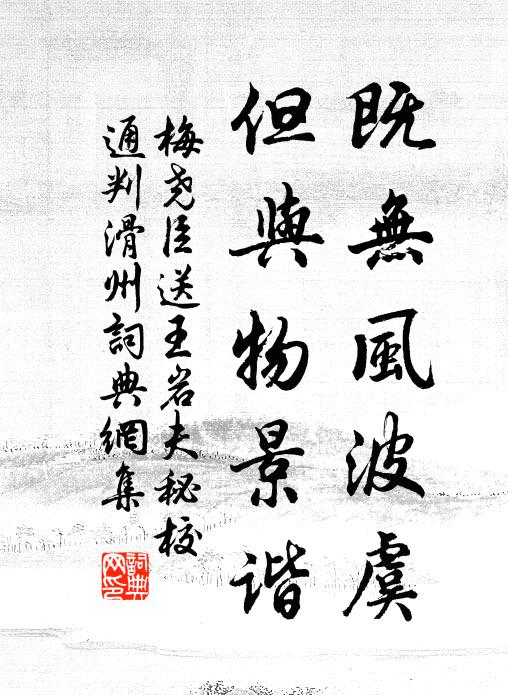 既無風波虞
但與物景谐
梅尧臣送王岩夫秘校
通判滑州詞典網集
詞典
网印